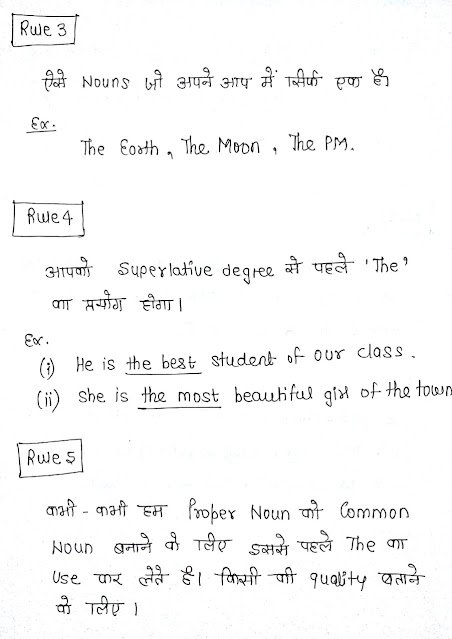 Rule 3
ऐसे Nouns जो अपने आप में सिर्फ एक हैं।
Ex.
The Earth, The Moon, The PM.
Rule 4
आपको Superlative degree से पहले 'The'
का प्रयोग होगा।
Ex.
(i) He is the best student of our class.
(ii) She is the most beautiful girl of the town
Rule 5
कभी - कभी हम Proper Noun को Common
Noun बनाने के लिए उससे पहले The का
Use कर लेते हैं। किसी की quality बताने
के लिए।